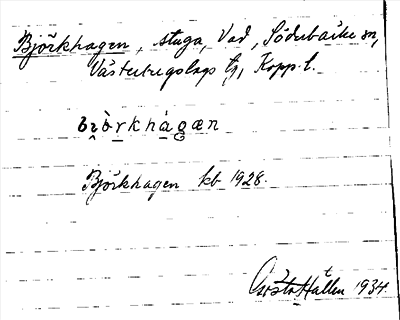 Björkhagen, stuga, Vad, Söderbärke sn,
Västerbergslags tg, Kopp. l.
bı̯ò̀rkhàgæn
Björkhagen kb 1928.
Gösta Hallen 1934.